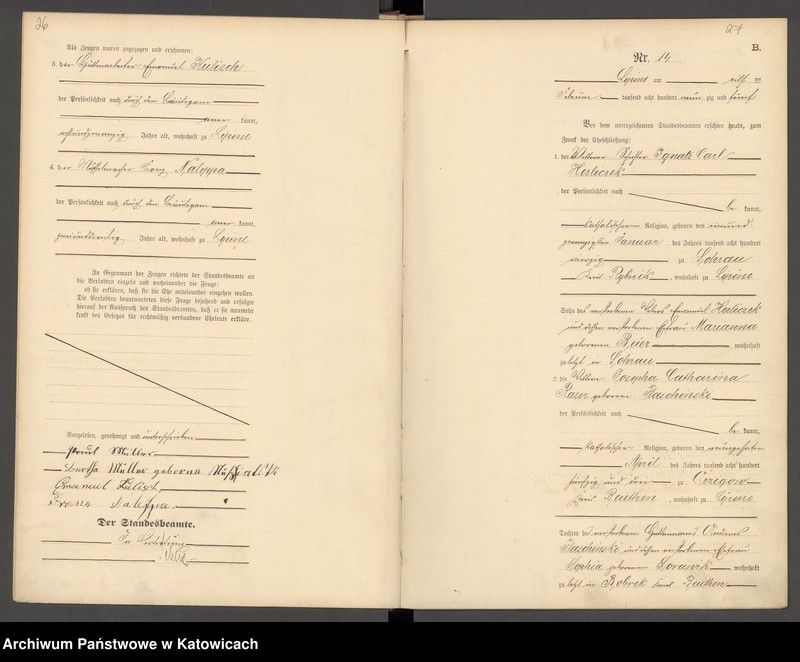 26
Als Zeugen waren zugezogen und erschienen:
3. der Hüttenarbeiter Emanuel Kulisch
der Persönlichkeit nach durch den Bräutigam
aner kannt,
Jahre alt, wohnhaft zu Lipine
4. der Franz Naleppa
der Persönlichkeit nach durch den Bräutigam
aner kannt,
Jahre alt, wohnhaft zu Lipine
In Gegenwart der Zeugen richtete der Standesbeamte an
die Verlobten einzeln und nacheinander die Frage:
ob sie erklären, daß sie die Ehe miteinander eingehen wollen.
Die Verlobten beantworteten diese Frage bejahend und erfolgte
hierauf der Ausspruch des Standesbeamten, daß er sie nunmehr
kraft des Gesetzes für rechtmäßig verbundene Eheleute erkläre.
Vorgelesen, genehmigt und unterschrieben
Paul Müller
Bertha Müller geborene
Emanuel Kulisch
Franz Naleppa.
Der Standesbeamte.
In Vertretung
27
B.
Nr. 14
Lipine am elf ten
Februar tausend acht hundert neun zig und fünf
Vor dem unterzeichneten Standesbeamten erschien heute, zum
Zweck der Eheschließung:
1. der Wittwer, Ignatz Carl
der Persönlichkeit nach
be kannt,
katholischer Religion, geboren den neunund
zwanzigsten Januar des Jahres tausend acht hundert
vierzig zu Sohrau
Kreis Rybnik, wohnhaft zu Lipine
Sohn des verstorbenen Emanuel
und dessen verstorbenen Ehefrau Marianna
geborenen Beier wohnhaft
zuletzt in Sohrau
2. die Wittwe Josepha Catharina
geborene Raschinski
der Persönlichkeit nach
be kannt,
katholischer Religion, geboren den neunzehnten
April des Jahres tausend acht hundert
fünfzig und drei zu Orzegow
Kreis Beuthen, wohnhaft zu Lipine
Tochter des verstorbenen Andreas
Raschinski und dessen verstorbenen Ehefrau
Sophia geborenen wohnhaft
zuletzt in Bobrek Kreis Beuthen
Archiwum Państwowe w Katowicach